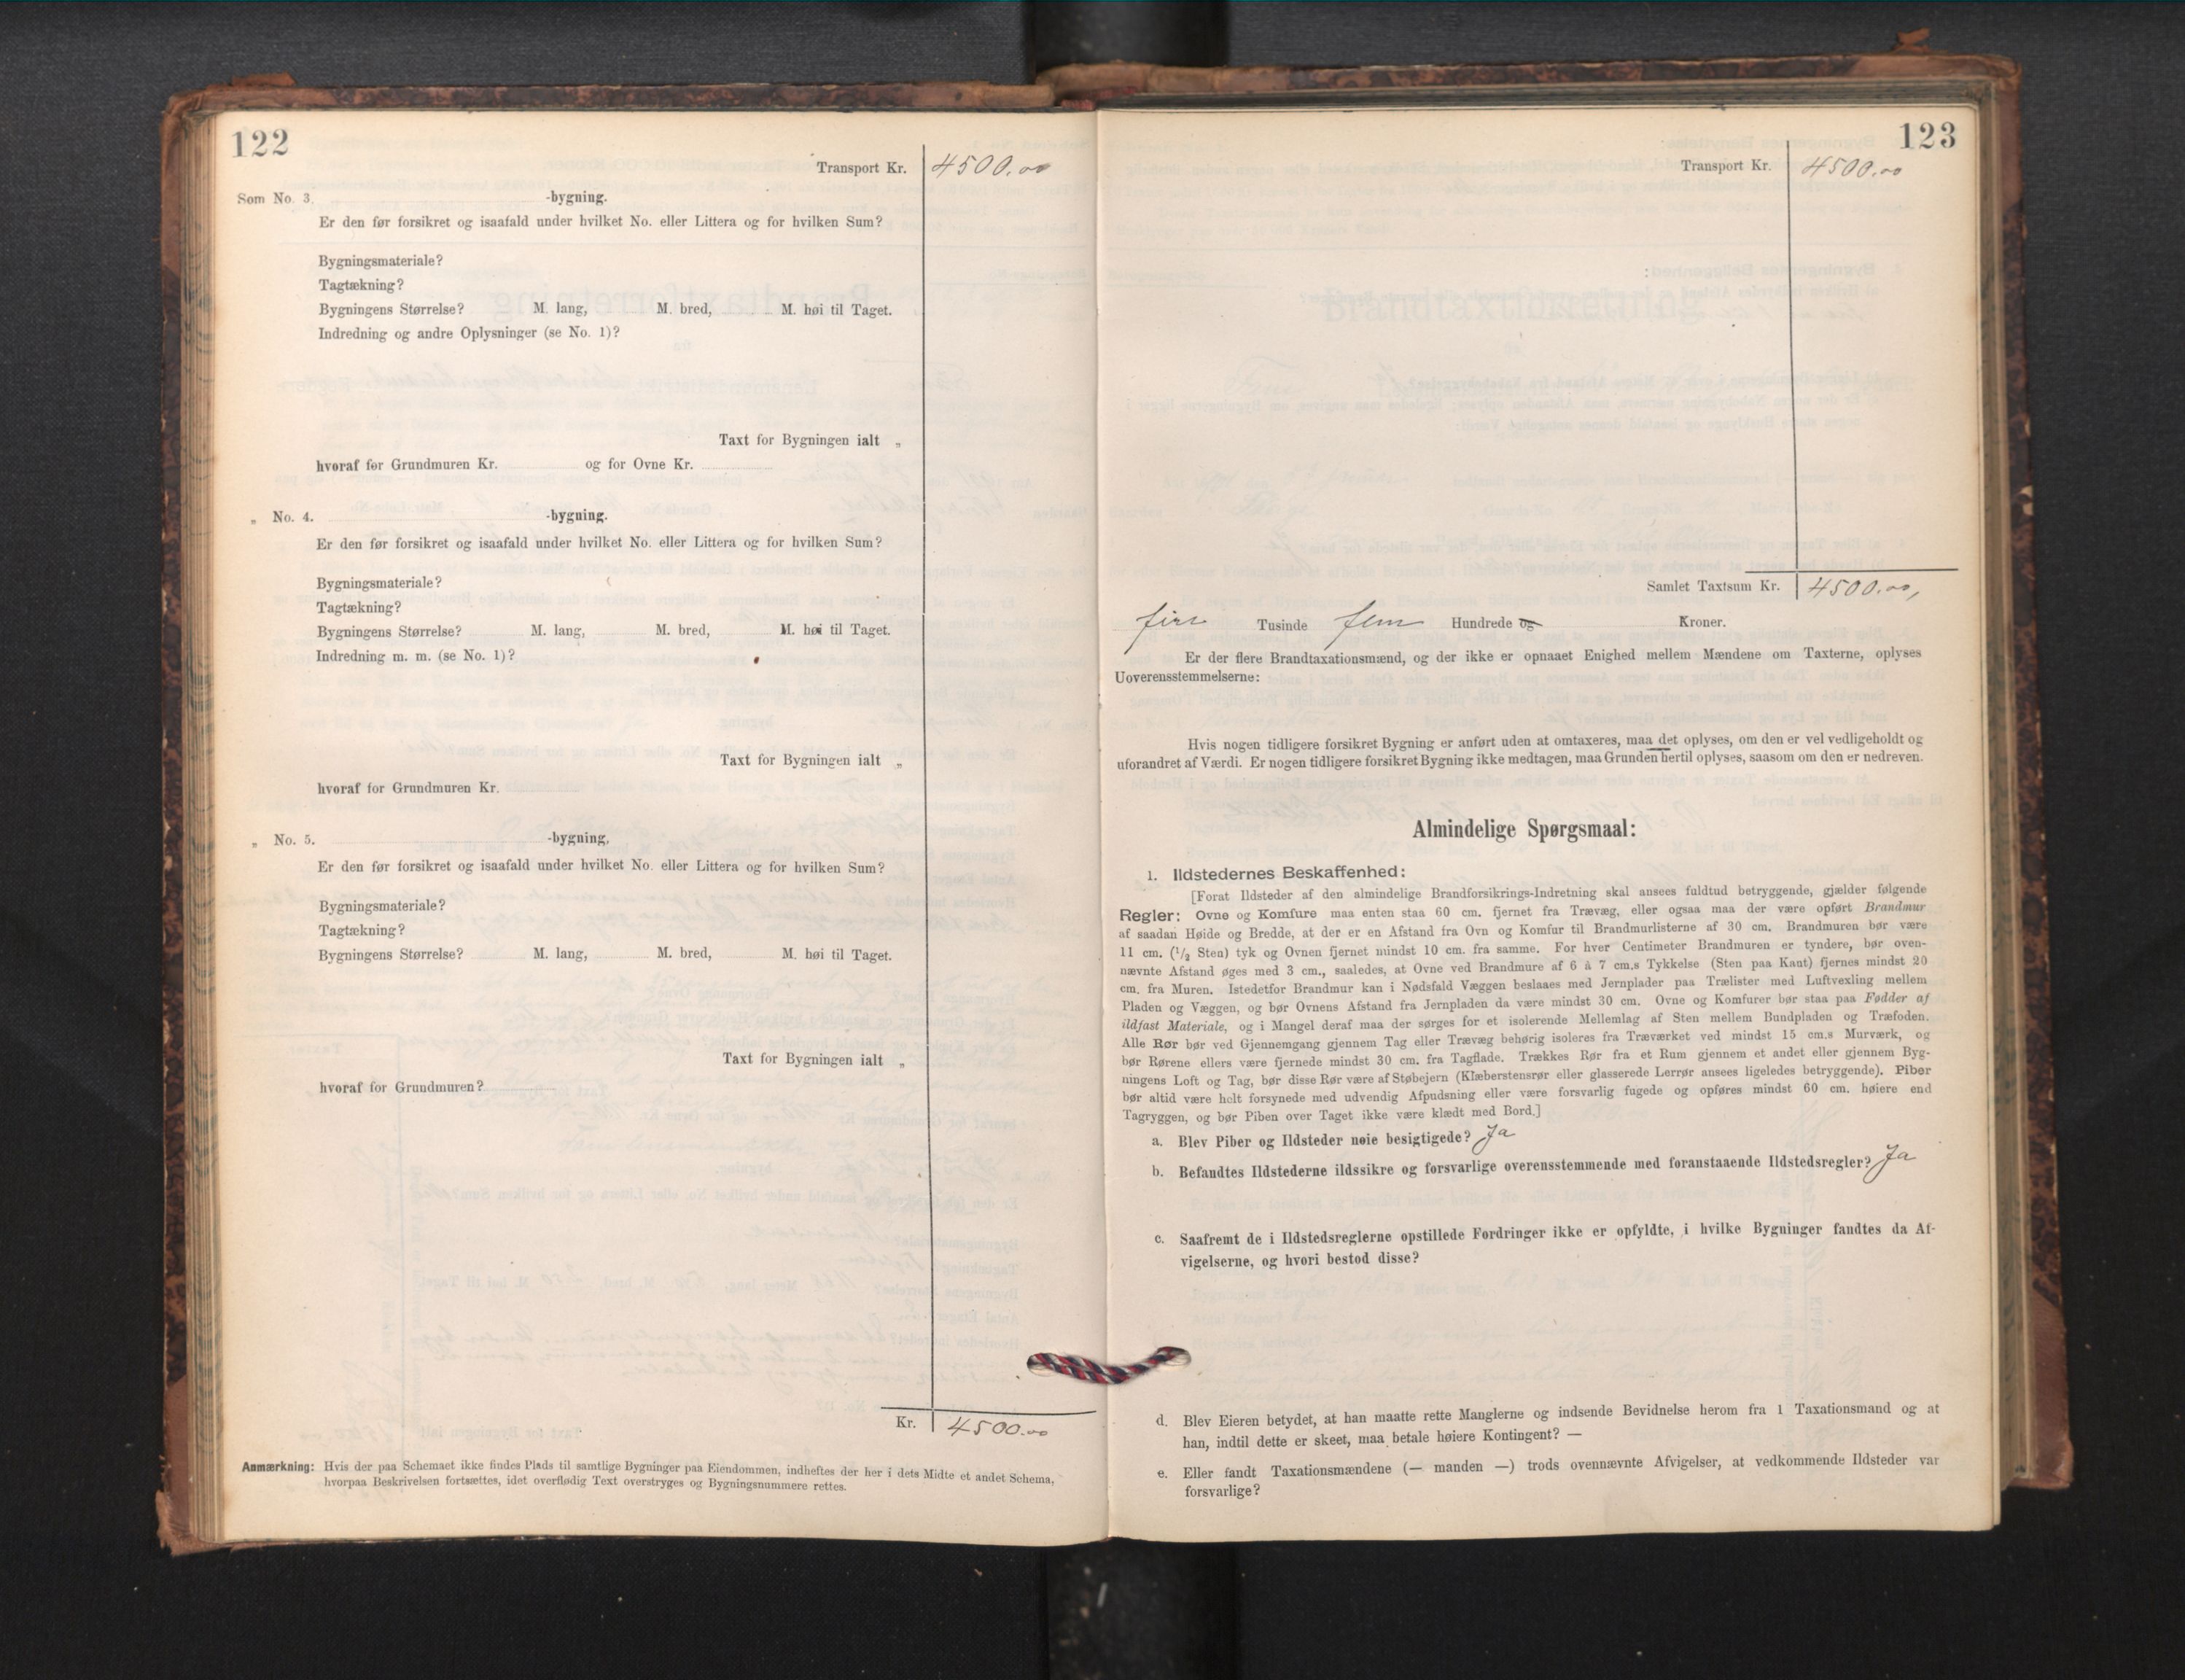 122
Transport Kr. 4500.00
Som No. 3. -bygning.
Er den før forsikret og isaafald under hvilket No. eller Littera og for hvilken Sum?
Bygningsmateriale?
Tagtækning?
Bygningens Størrelse? M. lang, M. bred, M. høi til Taget.
Indredning og andre Oplysninger (se No. 1)?
Taxt for Bygningen ialt „
hvoraf for Grundmuren Kr. og for Ovne Kr.
„ No. 4. -bygning.
Er den før forsikret og isaafald under hvilket No. eller Littera og for hvilken Sum?
Bygningsmateriale?
Tagtækning?
Bygningens Størrelse? M. lang, M. bred, M. høi til Taget.
Indredning m. m. (se No. 1)?
Taxt for Bygningen ialt „
hvoraf for Grundmuren Kr.
„ No. 5. -bygning,
Er den før forsikret og isaafald under hvilket No. eller Littera og for hvilken Sum?
Bygningsmateriale?
Tagtækning?
Bygningens Størrelse? M. lang, M. bred, M. høi til Taget.
Taxt for Bygningen ialt „
hvoraf for Grundmuren?
Kr. 4500.00
Anmærkning: Hvis der paa Schemaet ikke findes Plads til samtlige Bygninger paa Eiendommen, indheftes der her i dets Midte et andet Schema,
hvorpaa Beskrivelsen fortsættes, idet overflødig Text overstryges og Bygningsnummere rettes.
123
Transport Kr. 4500.00
Samlet Taxtsum Kr. 4500.00,
fire Tusinde fem Hundrede og Kroner.
Er der flere Brandtaxationsmænd, og der ikke er opnaaet Enighed mellem Mændene om Taxterne, oplyses
Uoverensstemmelserne:
Hvis nogen tidligere forsikret Bygning er anført uden at omtaxeres, maa det oplyses, om den er vel vedligeholdt og
uforandret af Værdi. Er nogen tidligere forsikret Bygning ikke medtagen, maa Grunden hertil oplyses, saasom om den er nedreven.
Almindelige Spørgsmaal:
1. Ildstedernes Beskaffenhed:
[Forat Ildsteder af den almindelige Brandforsikrings-Indretning skal ansees fuldtud betryggende, gjælder følgende
Regler: Ovne og Komfure maa enten staa 60 cm. fjernet fra Trævæg, eller ogsaa maa der være opført Brandmur
af saadan Høide og Bredde, at der er en Afstand fra Ovn og Komfur til Brandmurlisterne af 30 cm. Brandmuren bør være
11 cm. (1/2 Sten) tyk og Ovnen fjernet mindst 10 cm. fra samme. For hver Centimeter Brandmuren er tyndere, bør oven-
nævnte Afstand øges med 3 cm., saaledes, at Ovne ved Brandmure af 6 à 7 cm.s Tykkelse (Sten paa Kant) fjernes mindst 20
cm. fra Muren. Istedetfor Brandmur kan i Nødsfald Væggen beslaaes med Jernplader paa Trælister med Luftvexling mellem
Pladen og Væggen, og bør Ovnens Afstand fra Jernpladen da være mindst 30 cm. Ovne og Komfurer bør staa paa Fødder af
ildfast Materiale, og i Mangel deraf maa der sørges for et isolerende Mellemlag af Sten mellem Bundpladen og Træfoden.
Alle Rør bør ved Gjennemgang gjennem Tag eller Trævæg behørig isoleres fra Træværket ved mindst 15 cm.s Murværk, og
bør Rørene ellers være fjernede mindst 30 cm. fra Tagflade. Trækkes Rør fra et Rum gjennem et andet eller gjennem Byg-
ningens Loft og Tag, bør disse Rør være af Støbejern (Klæberstensrør eller glasserede Lerrør ansees ligeledes betryggende). Piber
bør altid være helt forsynede med udvendig Afpudsning eller være forsvarlig fugede og opføres mindst 60 cm. høiere end
Tagryggen, og bør Piben over Taget ikke være klædt med Bord.]
a. Blev Piber og Ildsteder nøie besigtigede? Ja
b. Befandtes Ildstederne ildssikre og forsvarlige overensstemmende med foranstaaende Ildstedsregler? Ja
c. Saafremt de i Ildstedsreglerne opstillede Fordringer ikke er opfyldte, i hvilke Bygninger fandtes da Af-
vigelserne, og hvori bestod disse?
d. Blev Eieren betydet, at han maatte rette Manglerne og indsende Bevidnelse herom fra 1 Taxationsmand og at
han, indtil dette er skeet, maa betale høiere Kontingent? —
e. Eller fandt Taxationsmændene (— manden —) trods ovennævnte Afvigelser, at vedkommende Ildsteder var
forsvarlige?